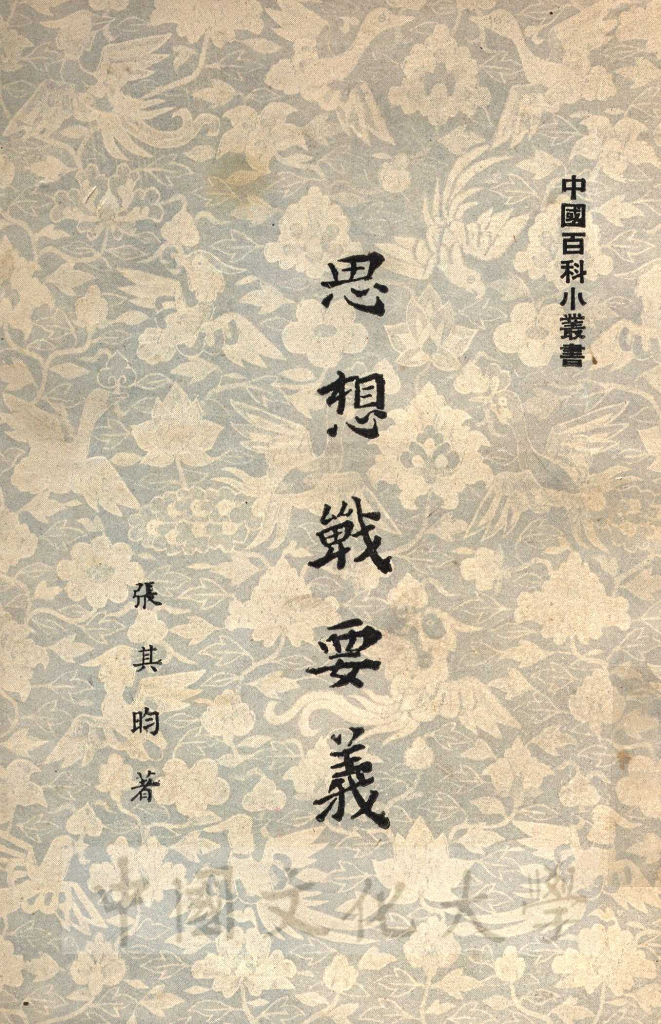 中國百科小叢書
思想戰要義
張其昀著
中國文化大學